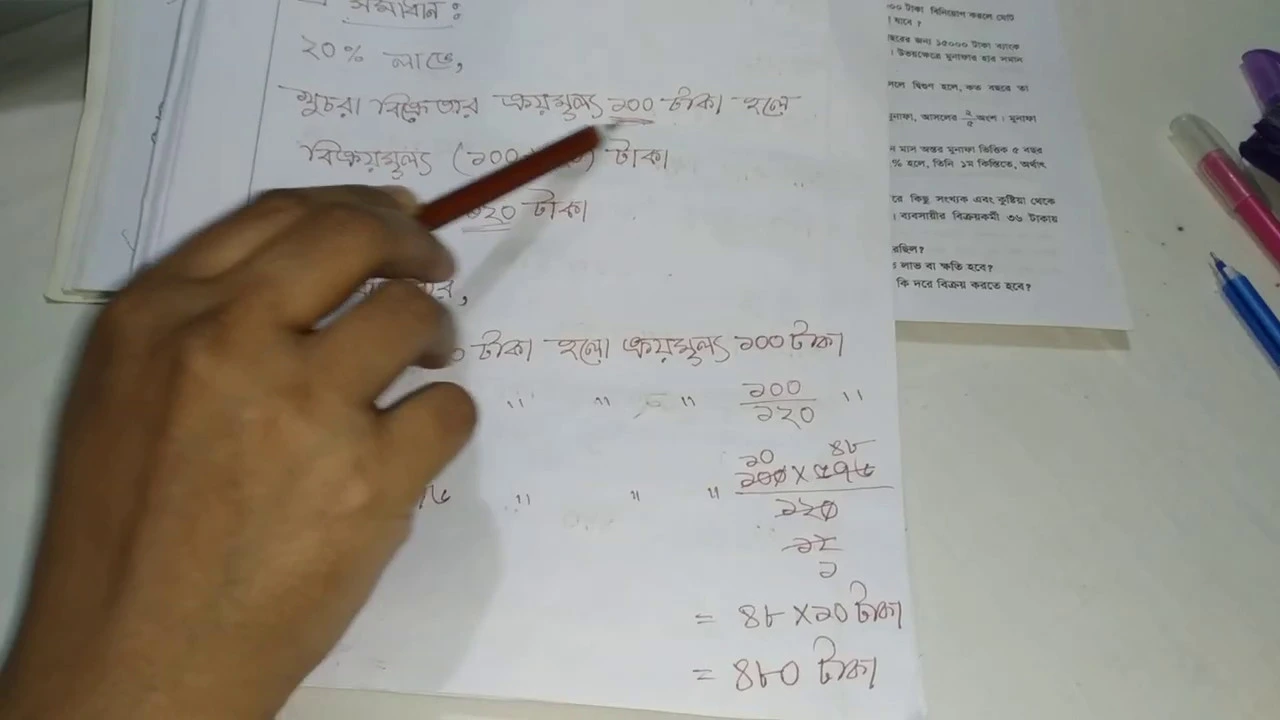 সমাধান :
২০% লাভে,
খুচরা বিক্রেতার ক্রয়মূল্য ১০০ টাকা হলে
বিক্রয়মূল্য (১০০ ) টাকা
১২০ টাকা
টাকা হলো ক্রয়মূল্য ১০০ টাকা
" " " ১০০/১২০ "
১০ ৪৮
" " " ১০০ × ৫৭৬
১২০
১২
১
= ৪৮ × ১০ টাকা
= ৪৮০ টাকা
০০ টাকা বিনিয়োগ করলে মোট
যাবে ?
ছরের জন্য ১৫০০০ টাকা ব্যাংকে
। উভয়ক্ষেত্রে মুনাফার হার সমান
সলে দ্বিগুণ হলে, কত বছরে তা
মুনাফা, আসলের ২/৫ অংশ। মুনাফা
ন মাস অন্তর মুনাফা ভিত্তিক ৫ বছর
% হলে, তিনি ১ম কিস্তিতে, অর্থাৎ
রে কিছু সংখ্যক এবং কুষ্টিয়া থেকে
। ব্যবসায়ীর বিক্রয়কর্মী ৩৬ টাকায়
রছিল?
লাভ বা ক্ষতি হবে?
কি দরে বিক্রয় করতে হবে?